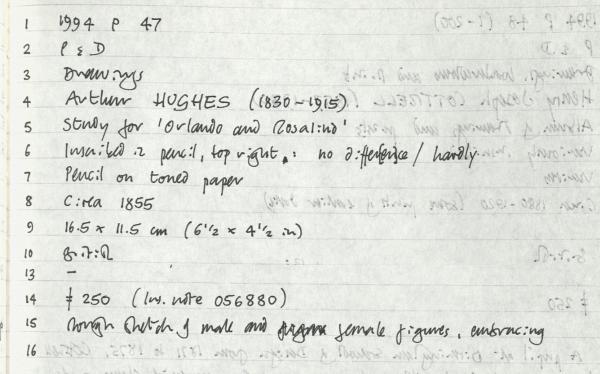 1 1994 P 47
2 P & D
3 Drawings
4 Arthur HUGHES (1830-1915)
5 Study for 'Orlando and Rosalind'
6 Inscribed in pencil, top right, : no difference / hardly
7 Pencil on toned paper
8 Circa 1855
9 16.5 x 11.5 cm (6 1/2 x 4 1/2 in)
10
13 –
14 250 (Inv. note 056880)
15 Rough sketch of male and female figures, embracing
16